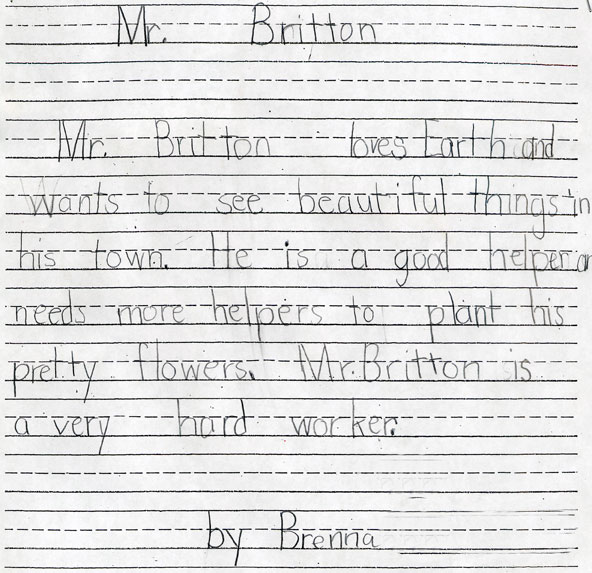 Mr. Britton
Mr. Britton loves Earth and
Wants to see beautiful things in
his town. He is a good helper
needs more helpers to plant his
pretty flowers. Mr. Britton is
a very hard worker.
by Brenna